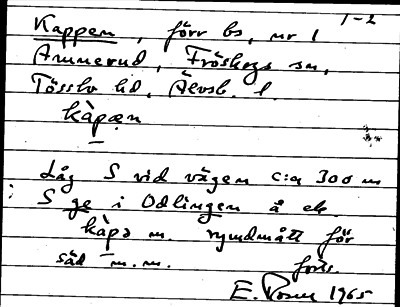 1-2
Kappen, förr bs, nr 1
Ammerud, Fröskogs sn,
Tössbo hd, Älvsb. l.
kàpæn
Låg S vid vägen c:a 300 m
S ge i Odlingen å ek
kàpə m. rymdmått för
säd m.m. forts.
E. Rosen 1965